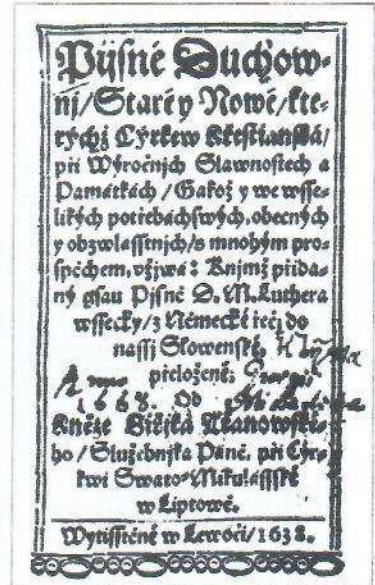 Pijſné Duchow-
nj/Staré y Nowé/kte-
rychž Cýrkew Křeſtianſká/
při Weyročnjch Slawnoſtech a
Památkách / Gakož y we wſſe-
likých potřebách ſwých, obecných
y obzwlaſſtnjch/s mnohým pro-
ſpěchem, vžjwá: K njmž přida-
ný gſau Pjſně D. M. Luthera
wſſecky/z Německé řeči do
naſſj Slowenſké,
přeložené;
1668. Od
Kněze Giřjka Tranowſké-
ho / Služebnjka Páně, při Cýr-
kwi Swato-Mikuláſſſké
w Liptowě.
Wytiſſtěné w Lewoči/1638.